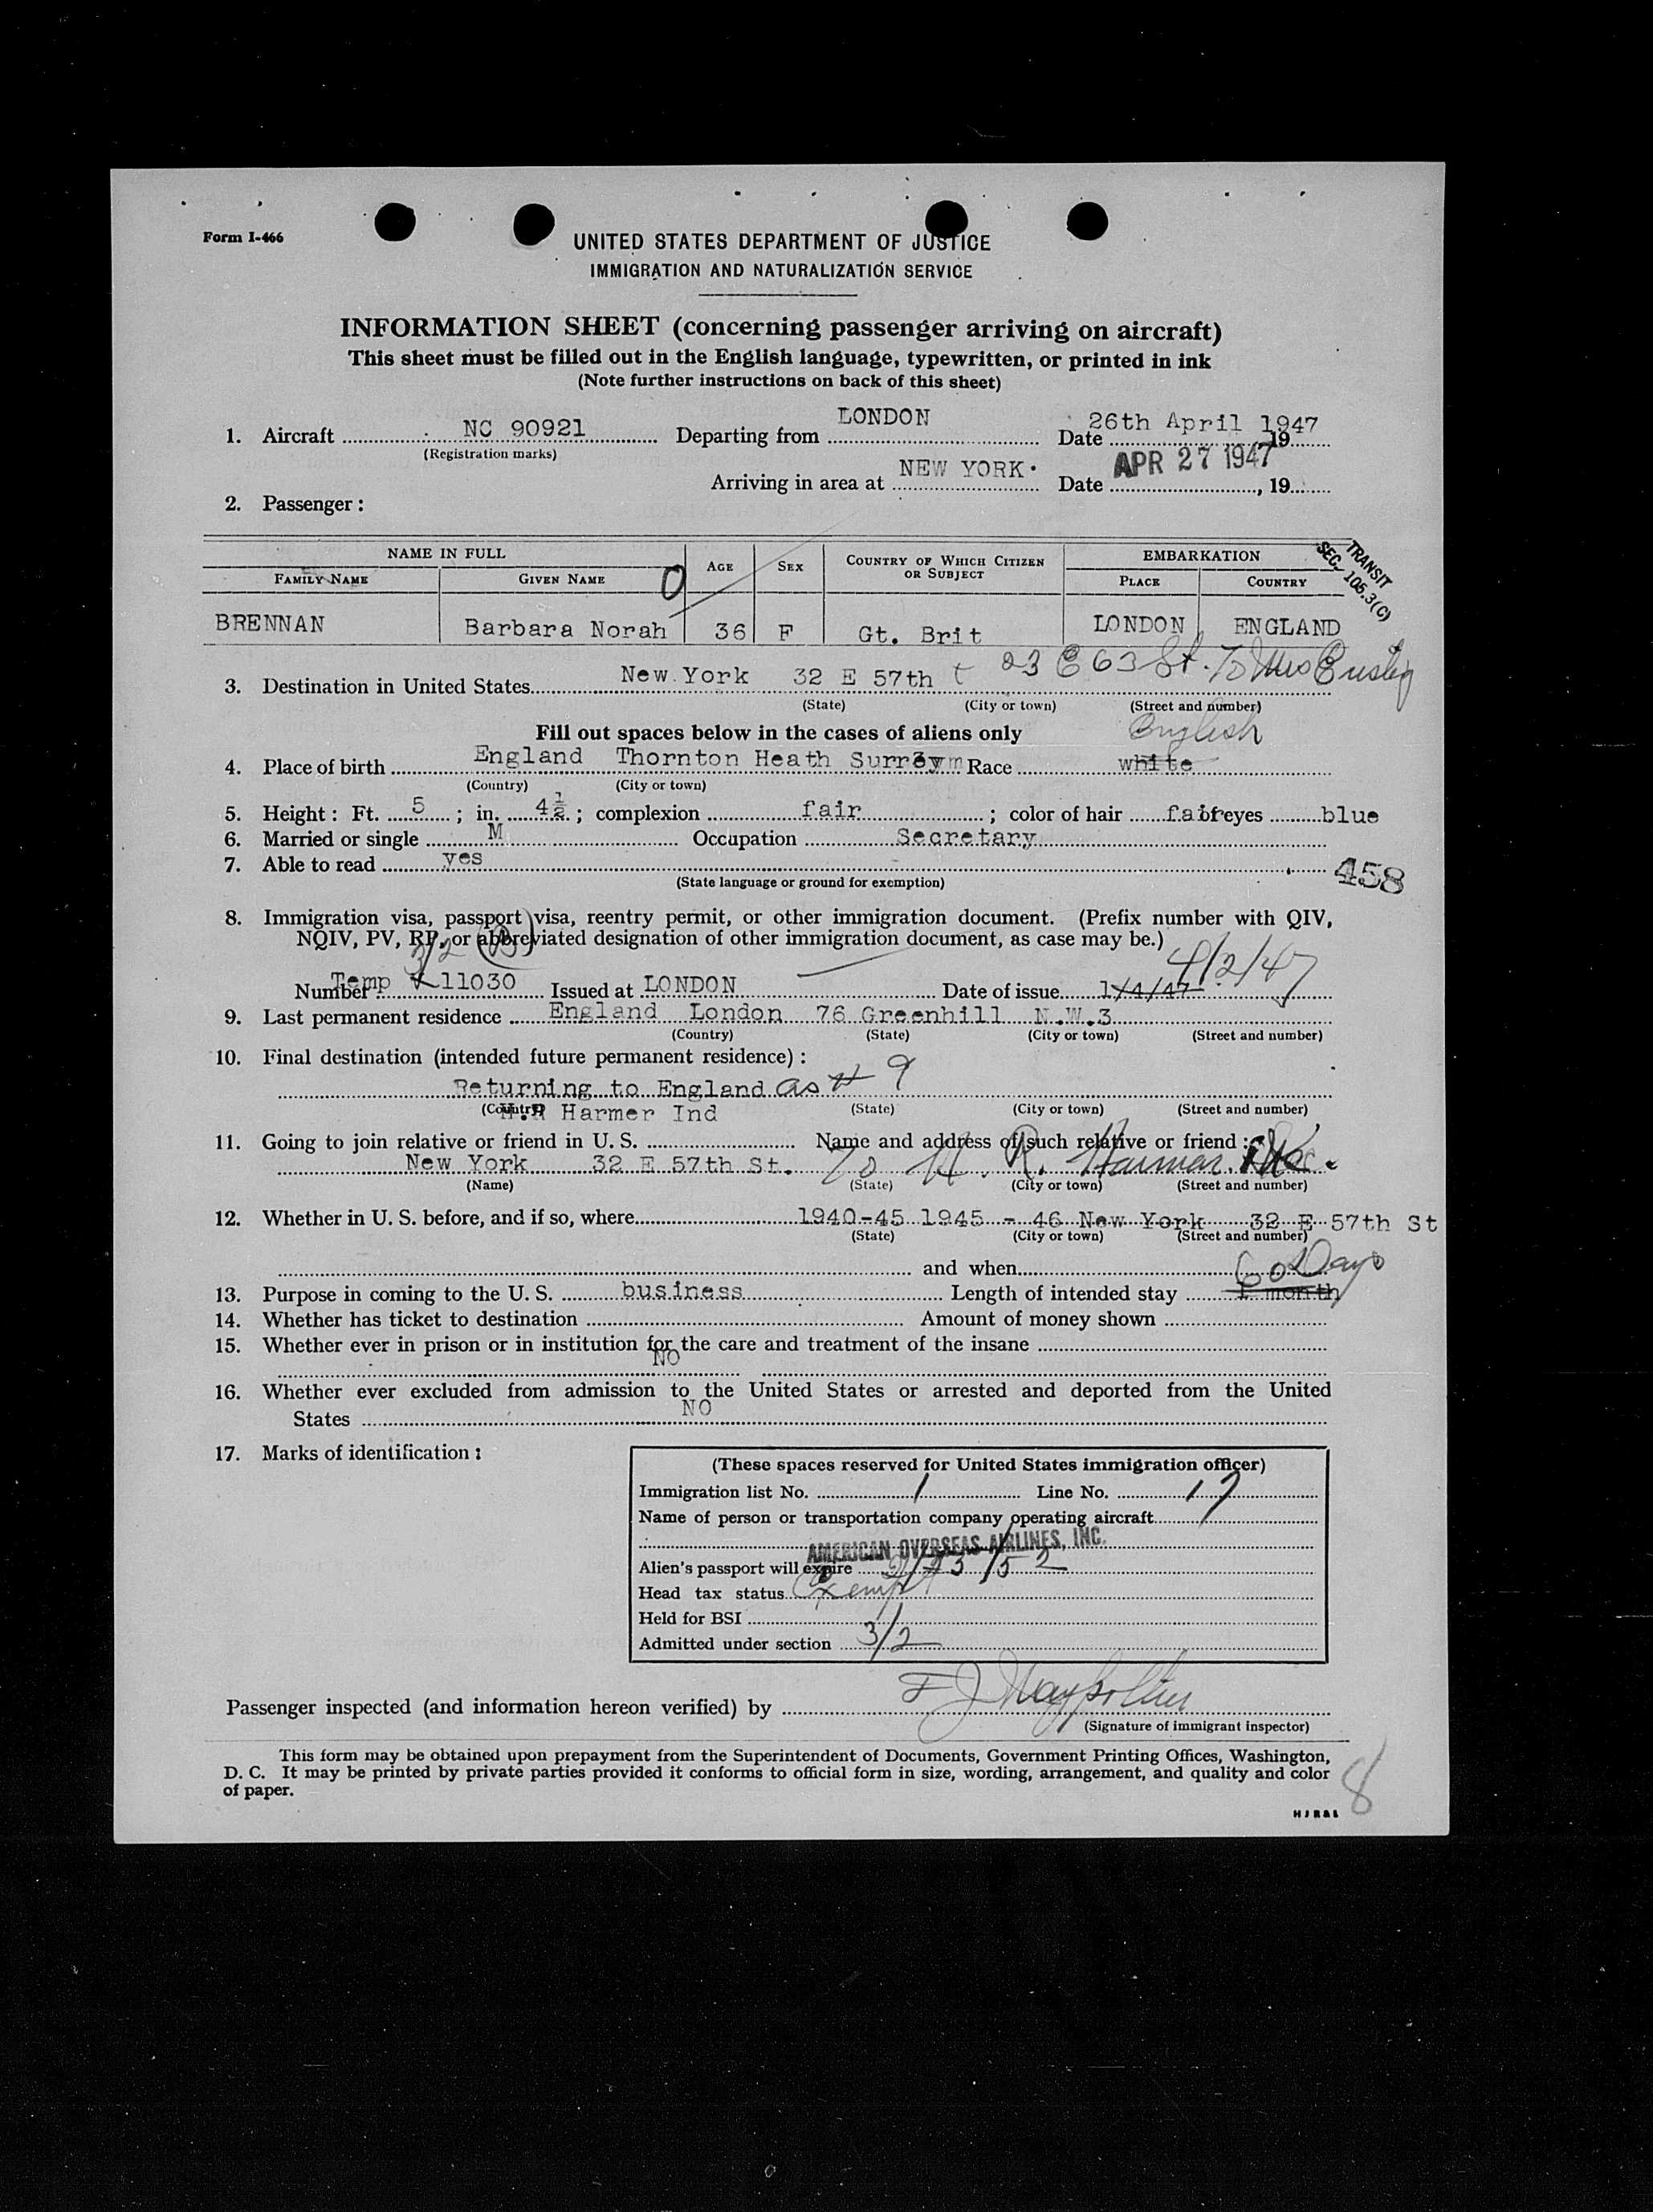 Form I-466
UNITED STATES DEPARTMENT OF JUSTICE
IMMIGRATION AND NATURALIZATION SERVICE
INFORMATION SHEET (concerning passenger arriving on aircraft)
This sheet must be filled out in the English language, typewritten, or printed in ink
(Note further instructions on back of this sheet)
1. Aircraft NC 90921 Departing from LONDON Date 26th April 1947 19
(Registration marks)
Arriving in area at NEW YORK. Date APR 27 1947, 19
2. Passenger:
NAME IN FULL AGE SEX COUNTRY OF WHICH CITIZEN OR SUBJECT EMBARKATION
FAMILY NAME GIVEN NAME PLACE COUNTRY
TRANSIT
SEC. 105.3(C)
0
BRENNAN Barbara Norah 36 F Gt. Brit LONDON ENGLAND
3. Destination in United States New York 32 E 57th t 23 E 63 St. Mrs
(State) (City or town) (Street and number)
Fill out spaces below in the cases of aliens only English
4. Place of birth England Thornton Heath Surrey Race white
(Country) (City or town)
5. Height: Ft. 5; in. 4½; complexion fair; color of hair fair of eyes blue
6. Married or single M Occupation Secretary
7. Able to read yes
(State language or ground for exemption)
458
8. Immigration visa, passport visa, reentry permit, or other immigration document. (Prefix number with QIV,
NQIV, PV, RP, or abbreviated designation of other immigration document, as case may be.)
3/2 (B) 4/2/47
Number Temp V 11030 Issued at LONDON Date of issue 1/4/47
9. Last permanent residence England London 76 Greenhill N.W.3
(Country) (State) (City or town) (Street and number)
10. Final destination (intended future permanent residence):
Returning to England as # 9
(Country) (State) (City or town) (Street and number)
H.R Harmer Ind
11. Going to join relative or friend in U. S. Name and address of such relative or friend:
New York 32 E 57th St. To H. R. Harmer Inc.
(Name) (State) (City or town) (Street and number)
12. Whether in U. S. before, and if so, where 1940-45 1945 - 46 New York 32 E 57th St
(State) (City or town) (Street and number)
and when 60 Days
13. Purpose in coming to the U. S. business Length of intended stay 1 month
14. Whether has ticket to destination Amount of money shown
15. Whether ever in prison or in institution for the care and treatment of the insane
NO
16. Whether ever excluded from admission to the United States or arrested and deported from the United
States NO
17. Marks of identification:
(These spaces reserved for United States immigration officer)
Immigration list No. 1 Line No. 17
Name of person or transportation company operating aircraft
AMERICAN OVERSEAS AIRLINES, INC.
Alien's passport will expire 2/23/52
Head tax status Exempt
Held for BSI
Admitted under section 3/2
Passenger inspected (and information hereon verified) by
(Signature of immigrant inspector)
This form may be obtained upon prepayment from the Superintendent of Documents, Government Printing Offices, Washington,
D. C. It may be printed by private parties provided it conforms to official form in size, wording, arrangement, and quality and color
of paper.
8
H J R & L